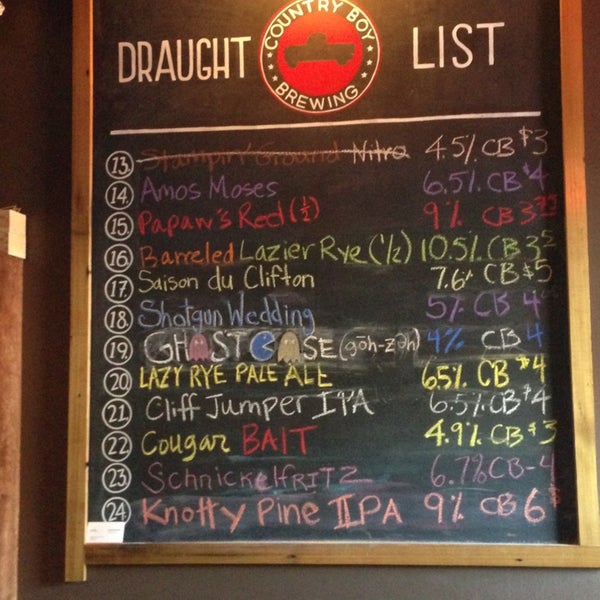 DRAUGHT COUNTRY BOY BREWING LIST
13. Stampin' Ground Nitro 4.5% CB $3
14. Amos Moses 6.5% CB $4
15. Papaw's Red (½) 9% CB 3
16. Barreled Lazier Rye (½) 10.5% CB 3
17. Saison du Clifton 7.6% CB $5
18. Shotgun Wedding 5% CB 4
19. GHOST GOSE (gōh-zuh) 4% CB 4
20. LAZY RYE PALE ALE 6.5% CB $4
21. Cliff Jumper IPA 6.5% CB $4
22. Cougar BAIT 4.9% CB $3
23. SCHNICKELFRITZ 6.7% CB-4
24. Knotty Pine IIPA 9% CB 6$